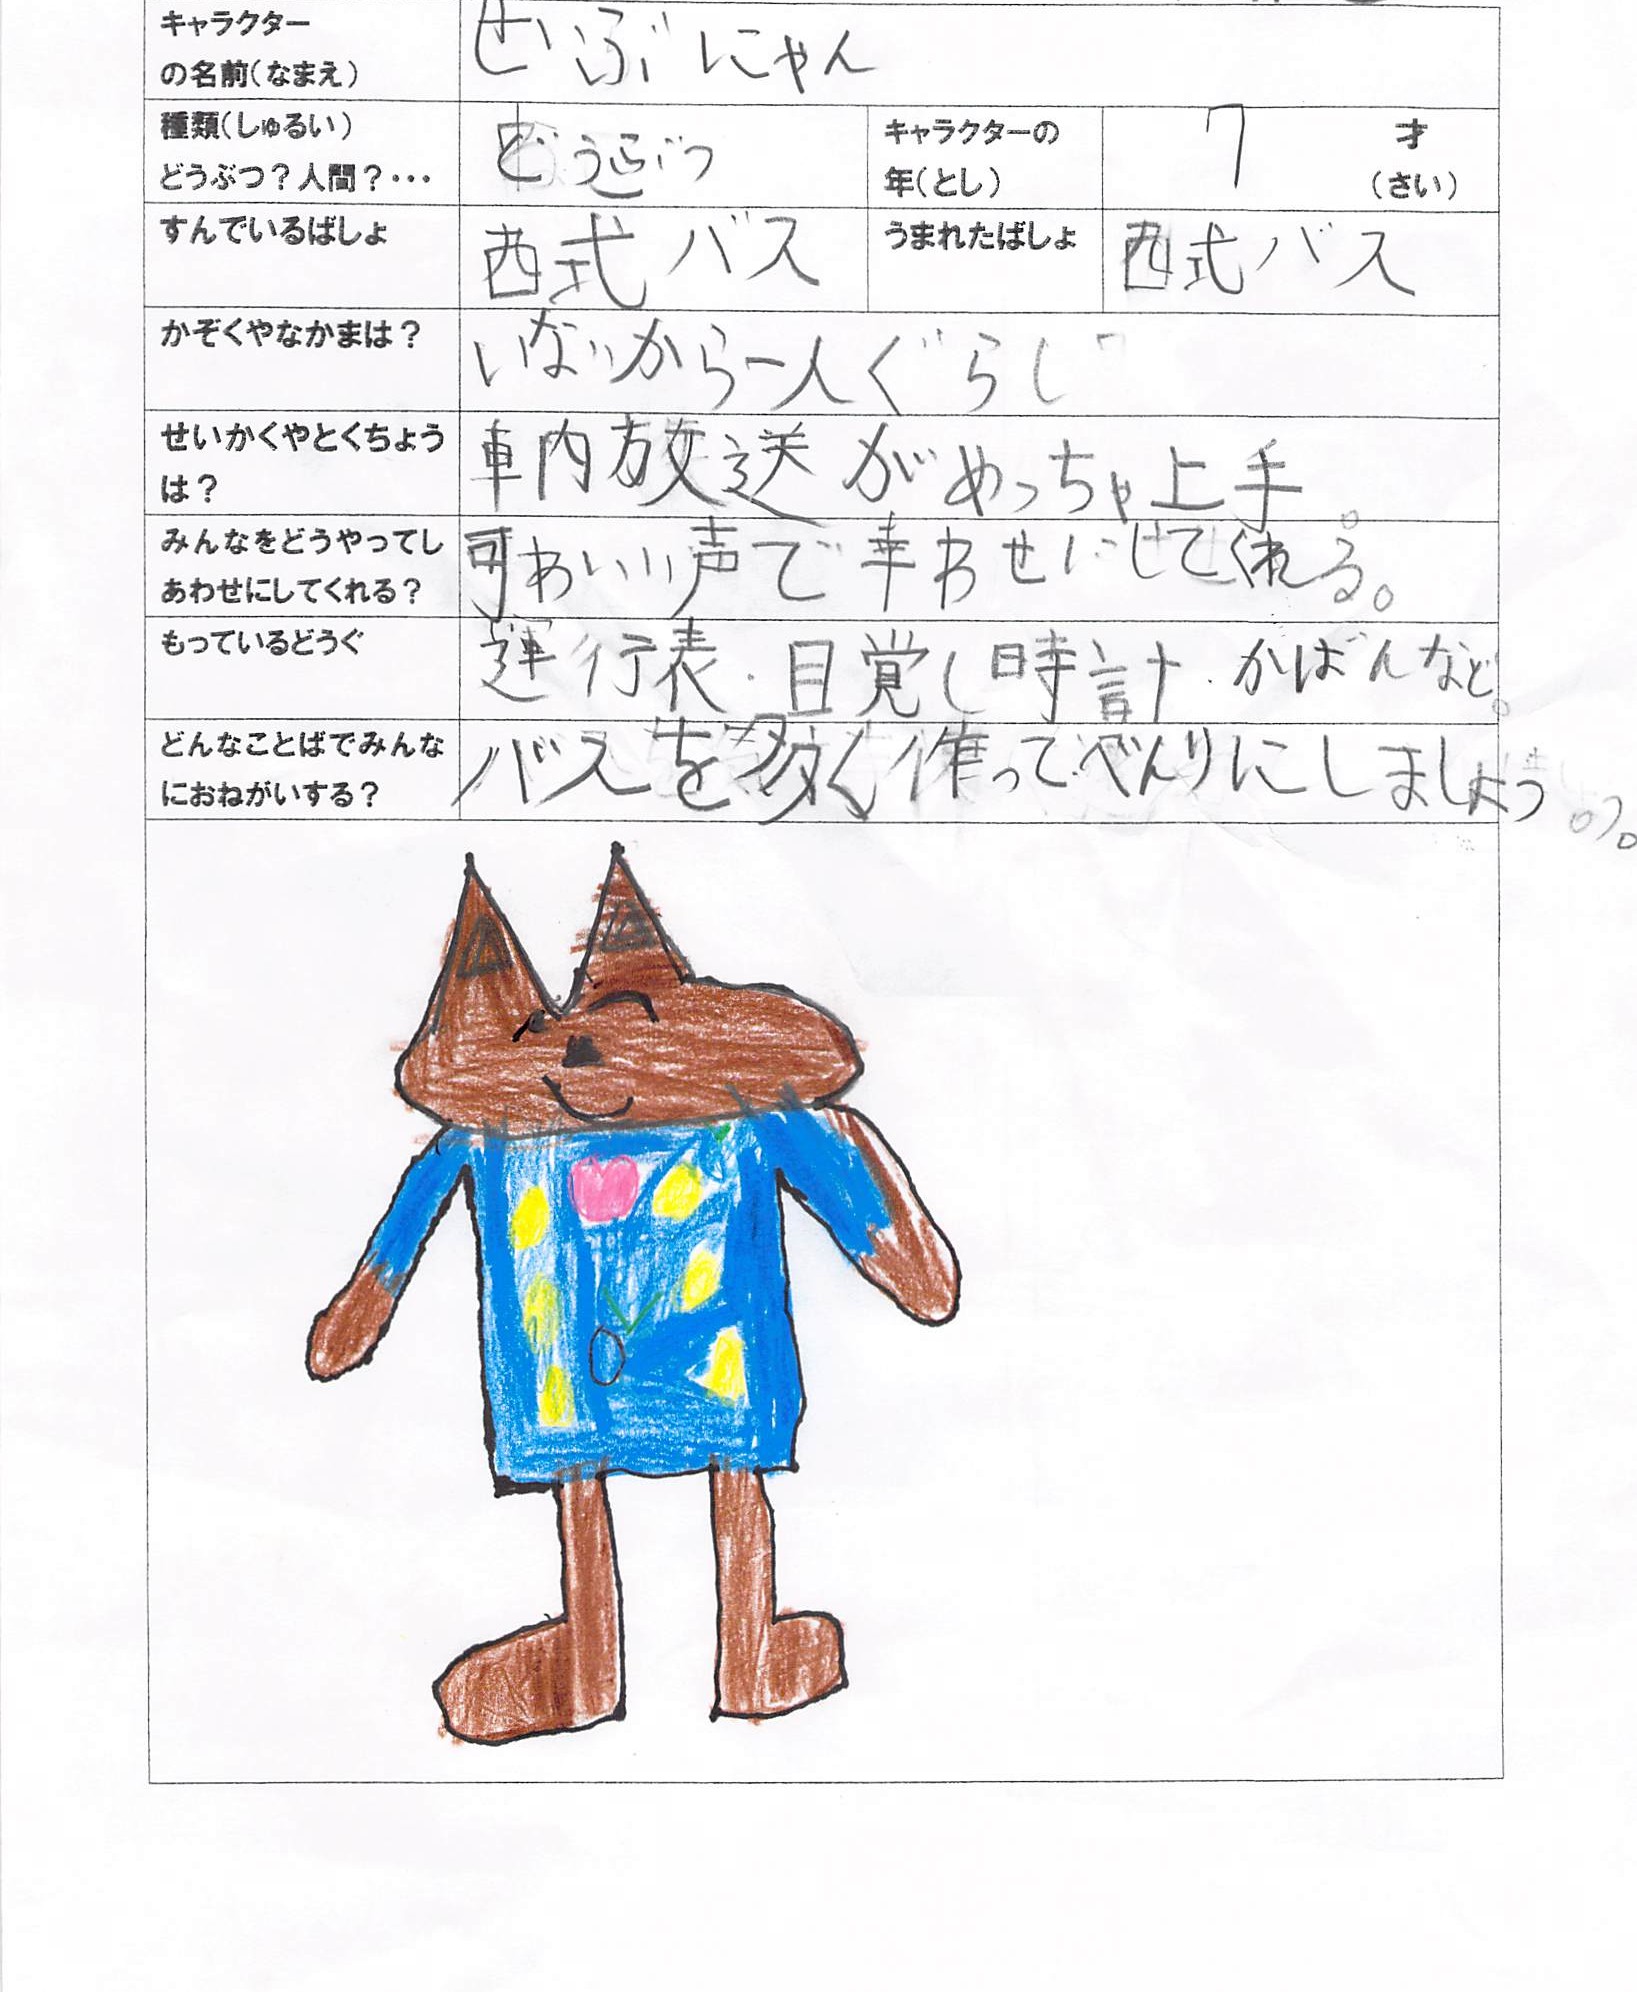 キャラクター
の名前(なまえ)
せいぶにゃん
種類(しゅるい)
どうぶつ?人間?・・・
どうぶつ
キャラクターの
年(とし)
7
才
(さい)
すんでいるばしょ
西式バス
うまれたばしょ
西式バス
かぞくやなかまは?
いないから一人ぐらし
せいかくやとくちょう
は?
車内放送がめっちゃ上手。
みんなをどうやってし
あわせにしてくれる?
可わいい声で幸わせにしてくれる。
もっているどうぐ
運行表・目覚し時計・かばんなど。
どんなことばでみんな
におねがいする?
バスを多く作ってべんりにしましょう。